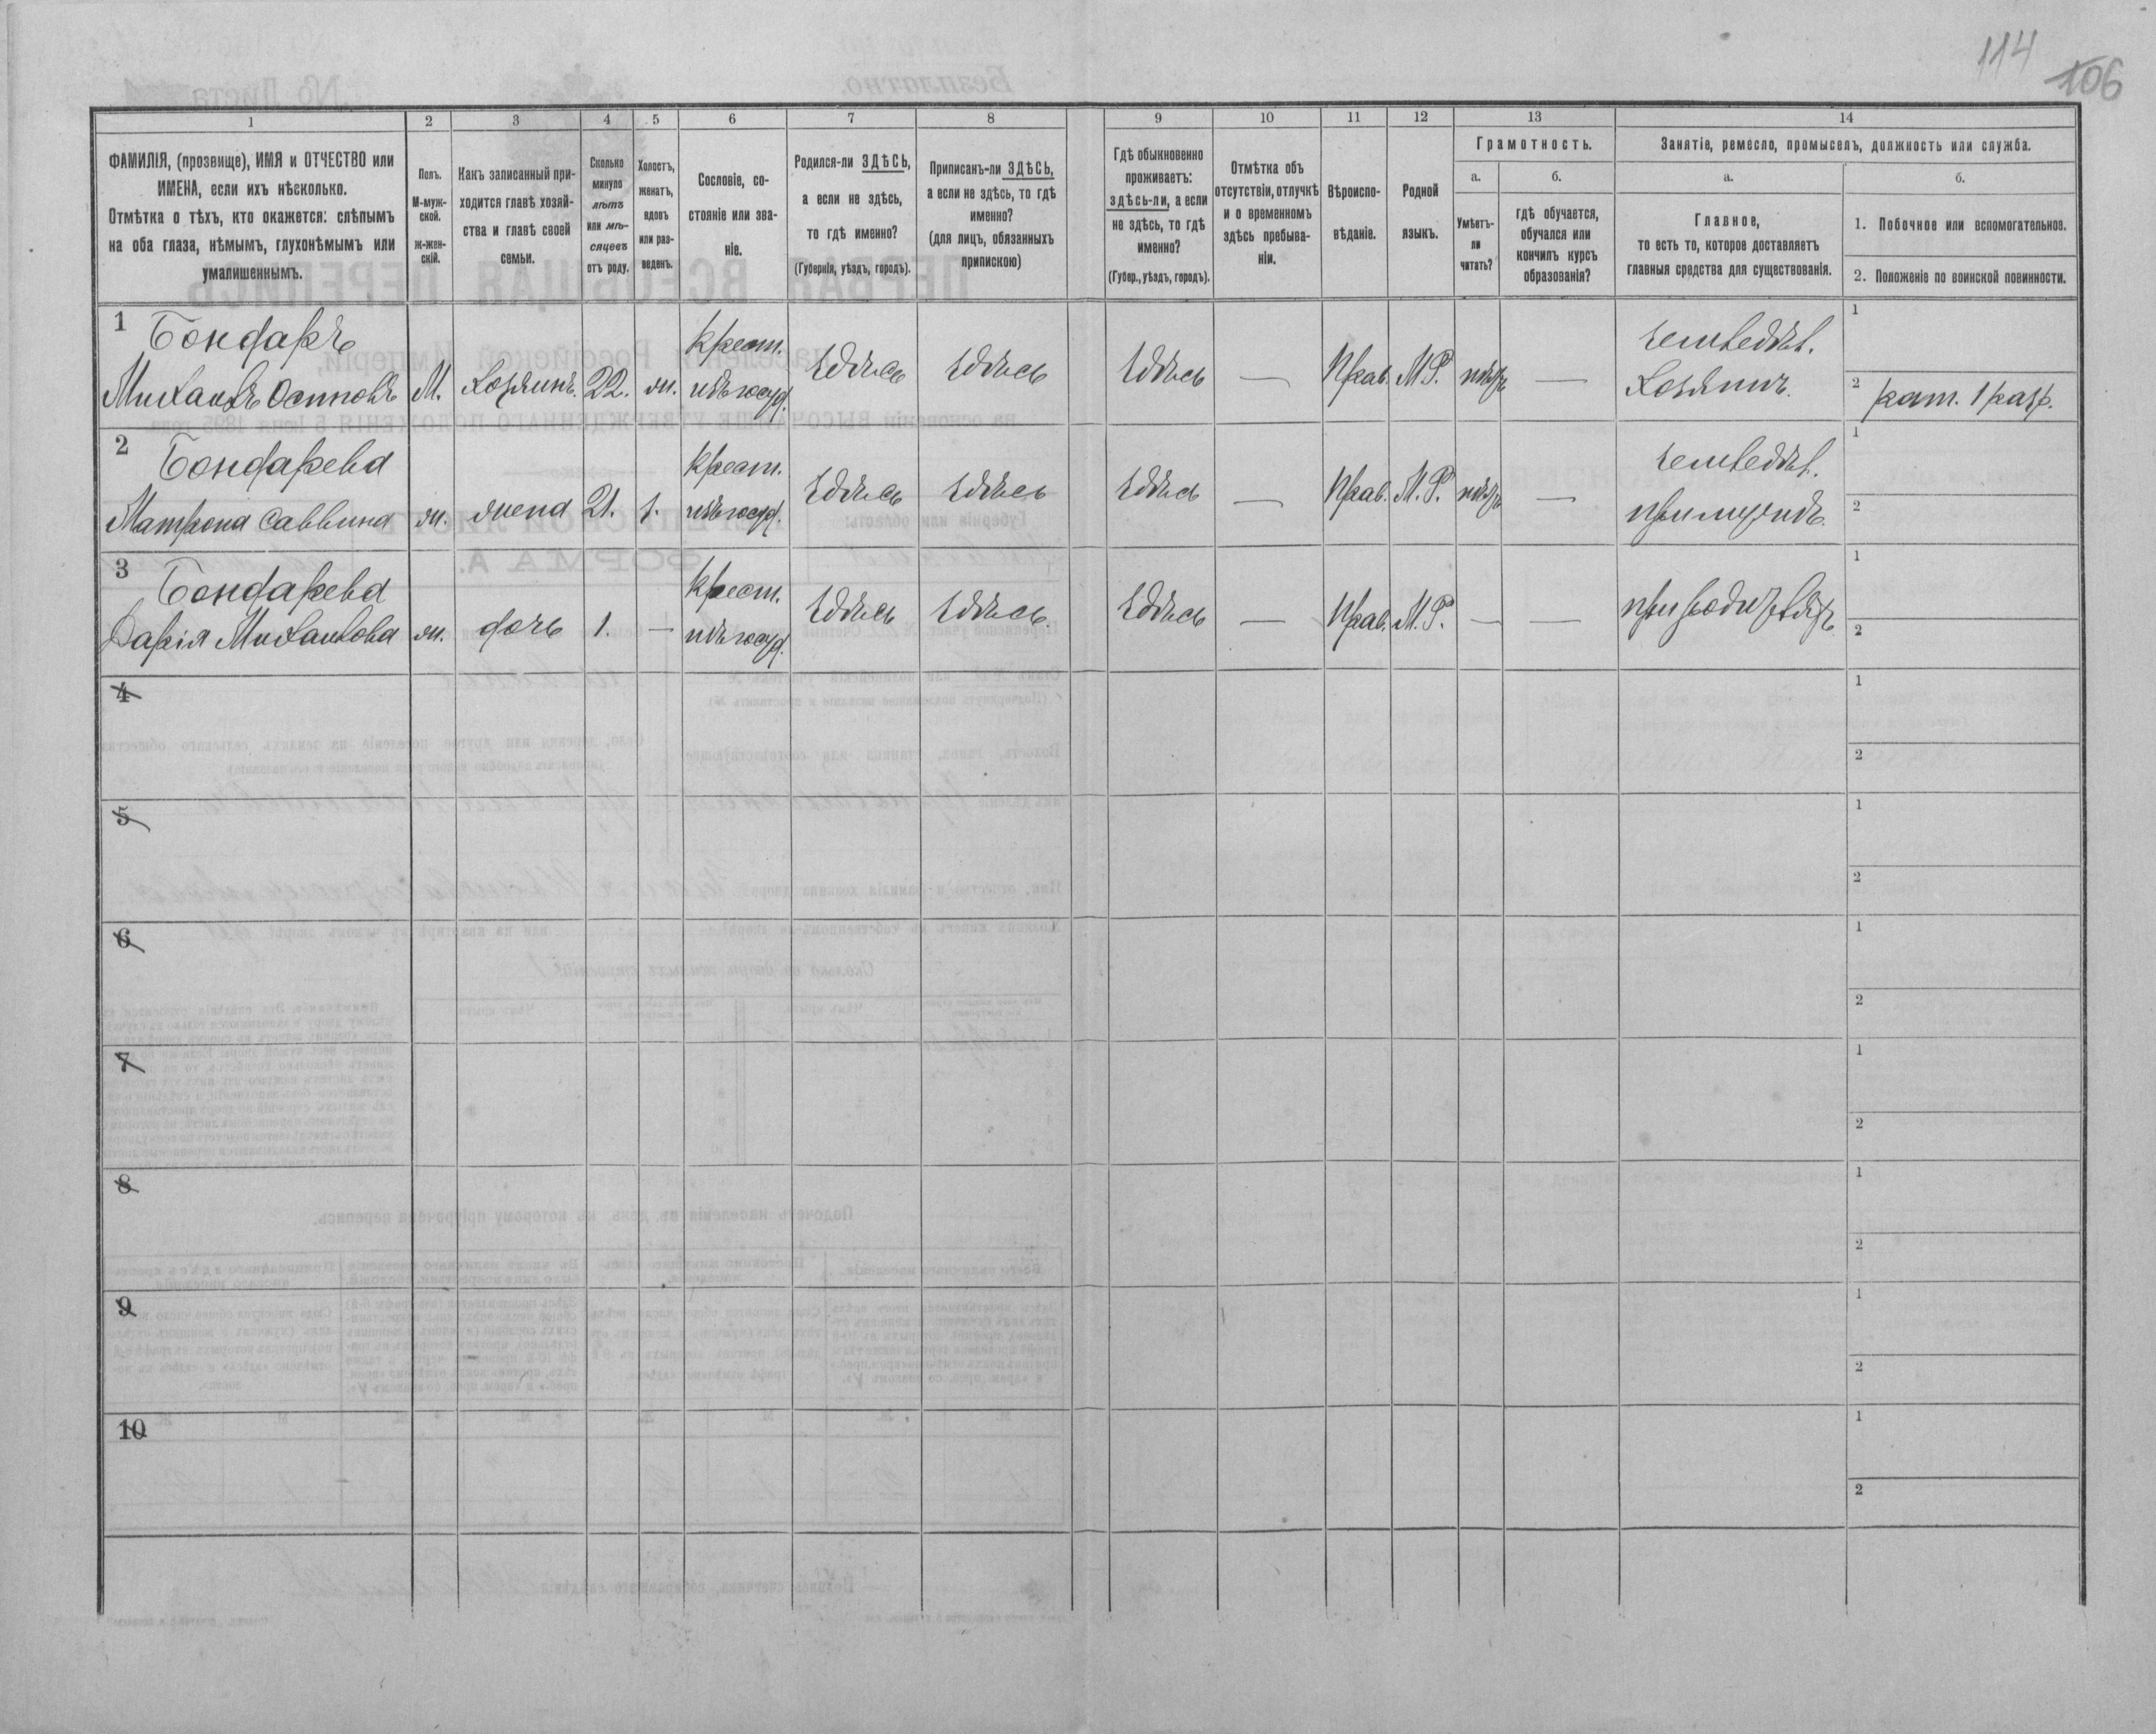 114
106
1
2
3
4
5
6
7
8
9
10
11
12
13
14
ФАМИЛІЯ, (прозвище), ИМЯ и ОТЧЕСТВО или
ИМЕНА, если ихъ нѣсколько.
Отмѣтка о тѣхъ, кто окажется: слѣпымъ
на оба глаза, нѣмымъ, глухонѣмымъ или
умалишеннымъ.
Полъ.
М-муж-
ской.
ж-жен-
скій.
Какъ записанный при-
ходится главѣ хозяй-
ства и главѣ своей
семьи.
Сколько
минуло
лѣтъ
или мѣ-
сяцевъ
отъ роду.
Холостъ,
женатъ,
вдовъ
или раз-
веденъ.
Сословіе, со-
стояніе или зва-
ніе.
Родился-ли ЗДѢСЬ,
а если не здѣсь,
то гдѣ именно?
(Губернія, уѣздъ, городъ).
Приписанъ-ли ЗДѢСЬ,
а если не здѣсь, то гдѣ
именно?
(для лицъ, обязанныхъ
припискою)
Гдѣ обыкновенно
проживаетъ:
здѣсь-ли, а если
не здѣсь, то гдѣ
именно?
(Губер., уѣздъ, городъ).
Отмѣтка объ
отсутствіи, отлучкѣ
и о временномъ
здѣсь пребыва-
ніи.
Вѣроиспо-
вѣданіе.
Родной
языкъ.
Грамотность.
а.
Умѣетъ-
ли
читать?
б.
гдѣ обучается,
обучался или
кончилъ курсъ
образованія?
Занятіе, ремесло, промыселъ, должность или служба.
а.
Главное,
то есть то, которое доставляетъ
главныя средства для существованія.
б.
1. Побочное или вспомогательное.
2. Положеніе по воинской повинности.
1 Бондарь
Михаилъ Осиповъ М. хозяинъ. 22. ж. крест. изъ госуд. здѣсь здѣсь здѣсь — Прав. М.Р. нѣтъ — земледѣл. Хозяинъ. 1
2 рат. 1 разр.
2 Бондарева
Матрона Саввина ж. жена 21. з. крест. изъ госуд. здѣсь здѣсь здѣсь — Прав. М.Р. нѣтъ — земледѣл. при мужѣ. 1
2
3 Бондарева
Дарія Михаилова ж. дочь 1. — крест. изъ госуд. здѣсь здѣсь. здѣсь — Прав. М.Р. — — при родителяхъ 1
2
4
1
2
5
1
2
6
1
2
7
1
2
8
1
2
9
1
2
10
1
2